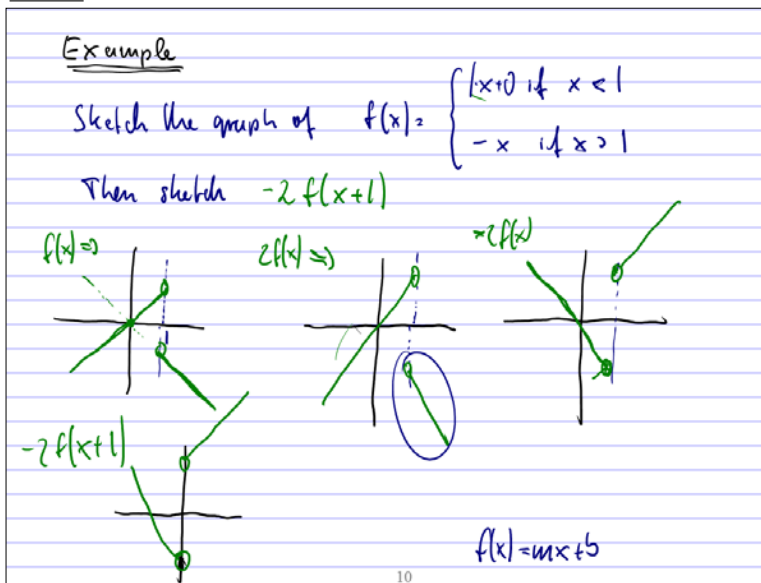 Example
Sketch the graph of f(x) = { 1·x+0 if x < 1
- x if x > 1
Then sketch -2 f(x+1)
f(x) =>
2f(x) =>
-2f(x)
-2f(x+1)
f(x) = mx+b
10